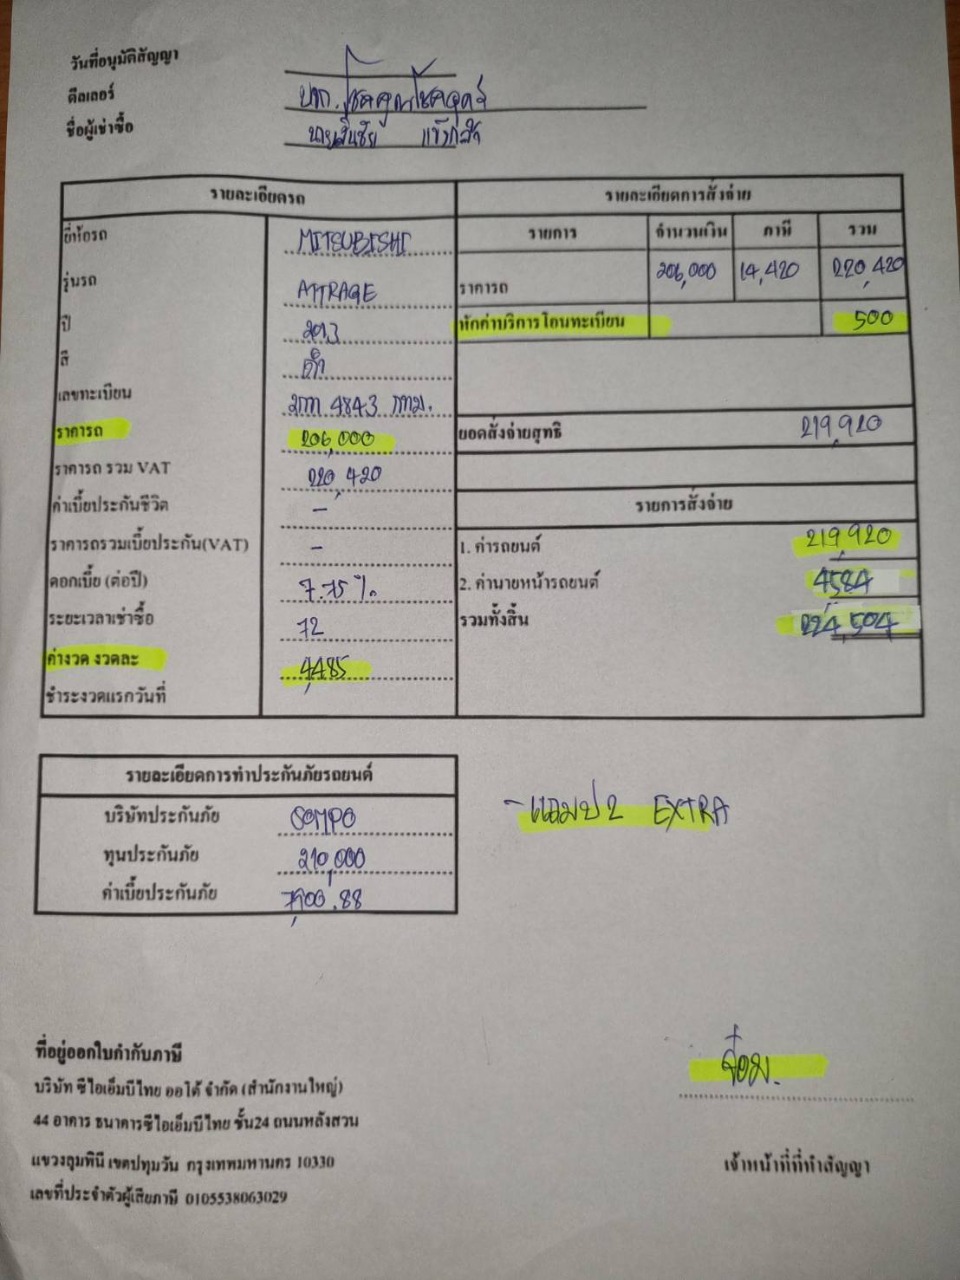 วันที่อนุมัติสัญญา
ดีลเลอร์ บจก. โชคคูณโชคอุดร์
ชื่อผู้เช่าซื้อ นายสินชัย
รายละเอียดรถ
ยี่ห้อรถ MITSUBISHI
รุ่นรถ ATTRAGE
ปี 2013
สี ดำ
เลขทะเบียน 2กก 4843 กทม.
ราคารถ 206,000
ราคารถ รวม VAT 220,420
ค่าเบี้ยประกันชีวิต -
ราคารถรวมเบี้ยประกัน(VAT) -
ดอกเบี้ย (ต่อปี) 7.75%
ระยะเวลาเช่าซื้อ 72
ค่างวด งวดละ 4,485
ชำระงวดแรกวันที่
รายละเอียดการสั่งจ่าย
รายการ จำนวนเงิน ภาษี รวม
ราคารถ 206,000 14,420 220,420
หักค่าบริการโอนทะเบียน 500
ยอดสั่งจ่ายสุทธิ 219,920
รายการสั่งจ่าย
1. ค่ารถยนต์ 219,920
2. ค่านายหน้ารถยนต์ 4584
รวมทั้งสิ้น 224,504
รายละเอียดการทำประกันภัยรถยนต์
บริษัทประกันภัย SOMPO
ทุนประกันภัย 210,000
ค่าเบี้ยประกันภัย 7,900.88
- แถมป2 EXTRA
ที่อยู่ออกใบกำกับภาษี
บริษัท ซีไอเอ็มบีไทย ออโต้ จำกัด (สำนักงานใหญ่)
44 อาคาร ธนาคารซีไอเอ็มบีไทย ชั้น24 ถนนหลังสวน
แขวงลุมพินี เขตปทุมวัน กรุงเทพมหานคร 10330
เลขที่ประจำตัวผู้เสียภาษี 0105538063029
เจ้าหน้าที่ที่ทำสัญญา